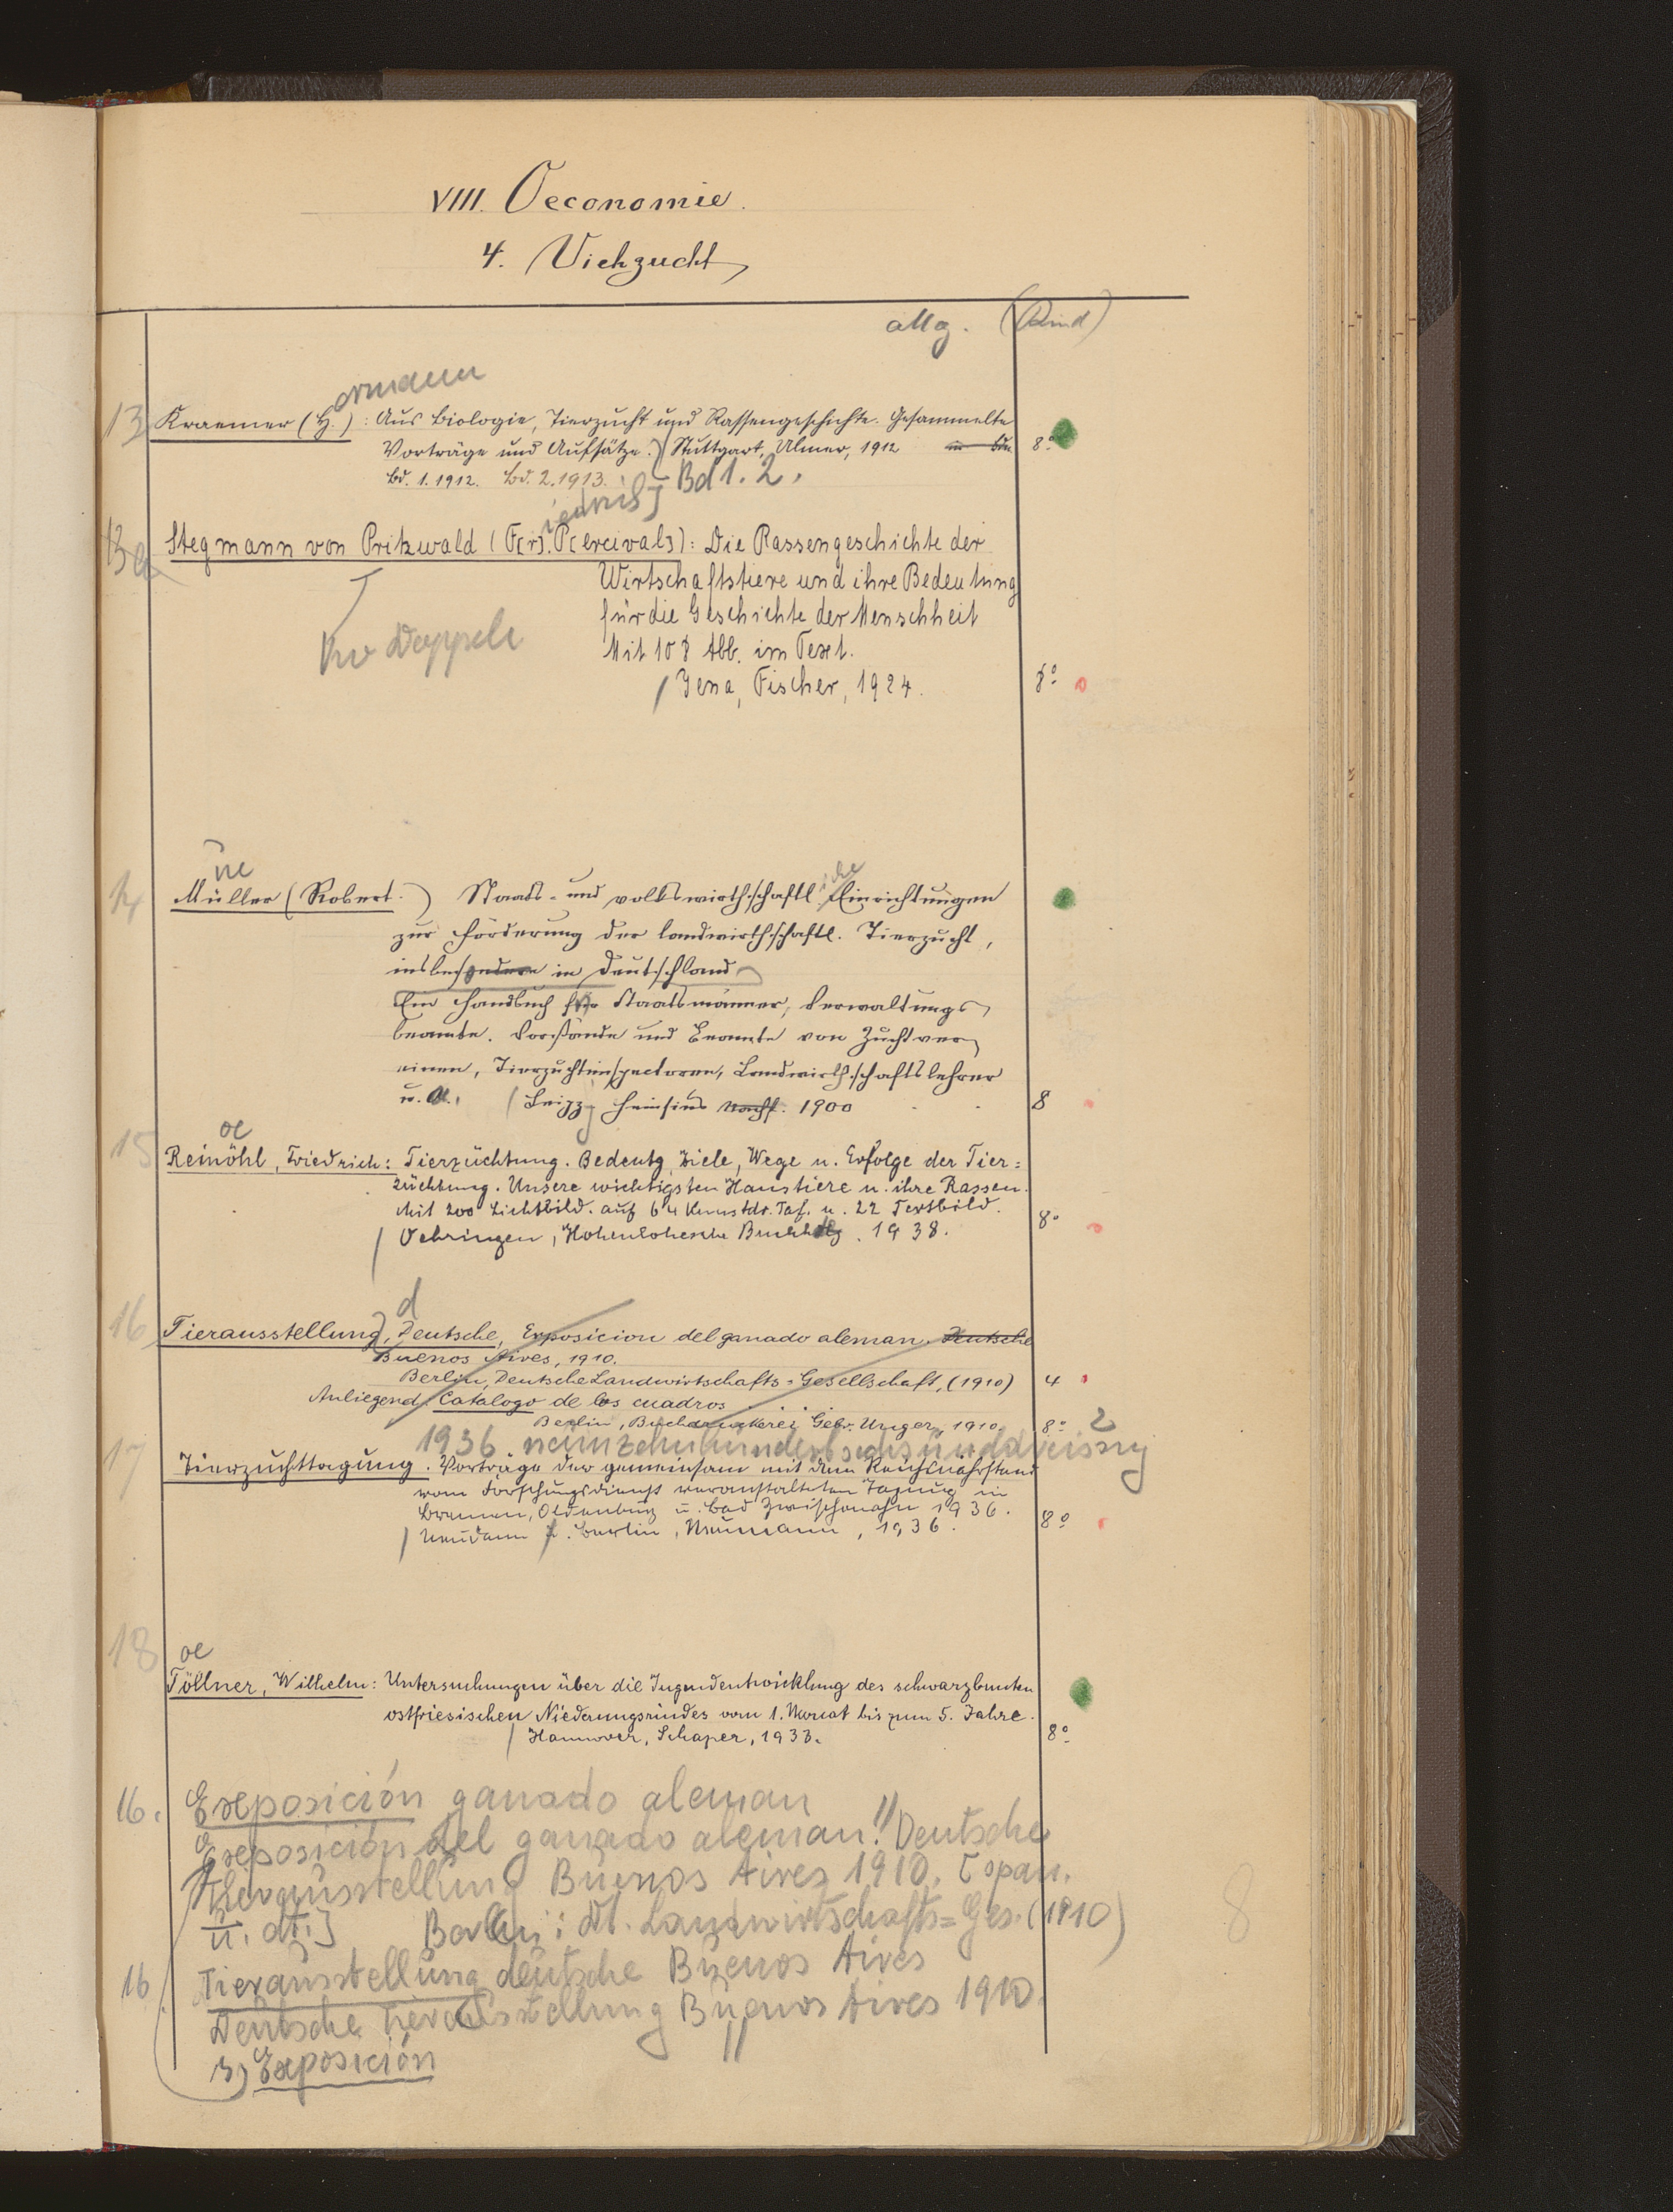 VIII. Oeconomie.
4. Viehzucht
allg. (Rind)
ormann
13 Kraemer (H.): Aus Biologie, Tierzucht und Rassengeschichte. Gesammelte
Vorträge und Aufsätze. Stuttgart, Ulmer, 1912 8°
Bd. 1. 1912. Bd. 2. 1913. Bd 1. 2.
iedrich
13a Stegmann von Pritzwald (F[r]. P[ercival]): Die Rassengeschichte der
Wirtschaftstiere und ihre Bedeutung
für die Geschichte der Menschheit
Mit 108 Abb. im Text.
/ Jena, Fischer, 1924. 8°
Doppel
ue
14 Müller (Robert.) Staats- und volkswirthschaftl. Einrichtungen
zur Förderung der landwirthschaftl. Tierzucht,
insbesondere in Deutschland
Ein Handbuch für Staatsmänner, Verwaltungs-
beamte. Vorstände und Beamte von Zuchtver-
einen, Tierzuchtinspectoren, Landwirthschaftslehrer
u. A. / Leipzg Heinsius Nachf. 1900 8
oe
15 Reinöhl, Friedrich: Tierzüchtung. Bedeutg, Ziele, Wege u. Erfolge der Tier=
züchtung. Unsere wichtigsten Haustiere u. ihre Rassen.
Mit 200 Lichtbild. auf 64 Kunstdr. Taf. u. 22 Textbild.
/ Oehringen, Hohenlohesche Buchhdlg. 1938. 8°
d
16 Tierausstellung, Deutsche, Exposicion del ganado aleman. Deutsche
Buenos Aires, 1910.
Berlin, Deutsche Landwirtschafts-Gesellschaft, (1910) 4
Anliegend: Catalogo de los cuadros . . . .
Berlin, Buchdruckerei Gebr. Unger, 1910. 8° 2
1936. neunzehnhundertsechsunddreissig
17 Tierzuchttagung. Vorträge der gemeinsam mit dem Reichsnährstand
vom Forschungsdienst veranstalteten Tagung in
Bremen, Oldenburg u. Bad Zwischenahn 1936.
/ Neudamm u. Berlin, Neumann, 1936. 8°
oe
18 Töllner, Wilhelm: Untersuchungen über die Jugendentwicklung des schwarzbunten
ostfriesischen Niederungsrindes vom 1. Monat bis zum 5. Jahre.
/ Hannover, Schaper, 1933. 8°
16. Exposición ganado aleman
Exposición del ganado aleman. // Deutsche
Thierausstellung Buenos Aires 1910. [span.
u. dt.] Berlin: Dt. Landwirtschafts=Ges. (1910)
8
16 Tierausstellung deutsche Buenos Aires
Deutsche Tierausstellung Buenos Aires 1910.
s. Exposición //